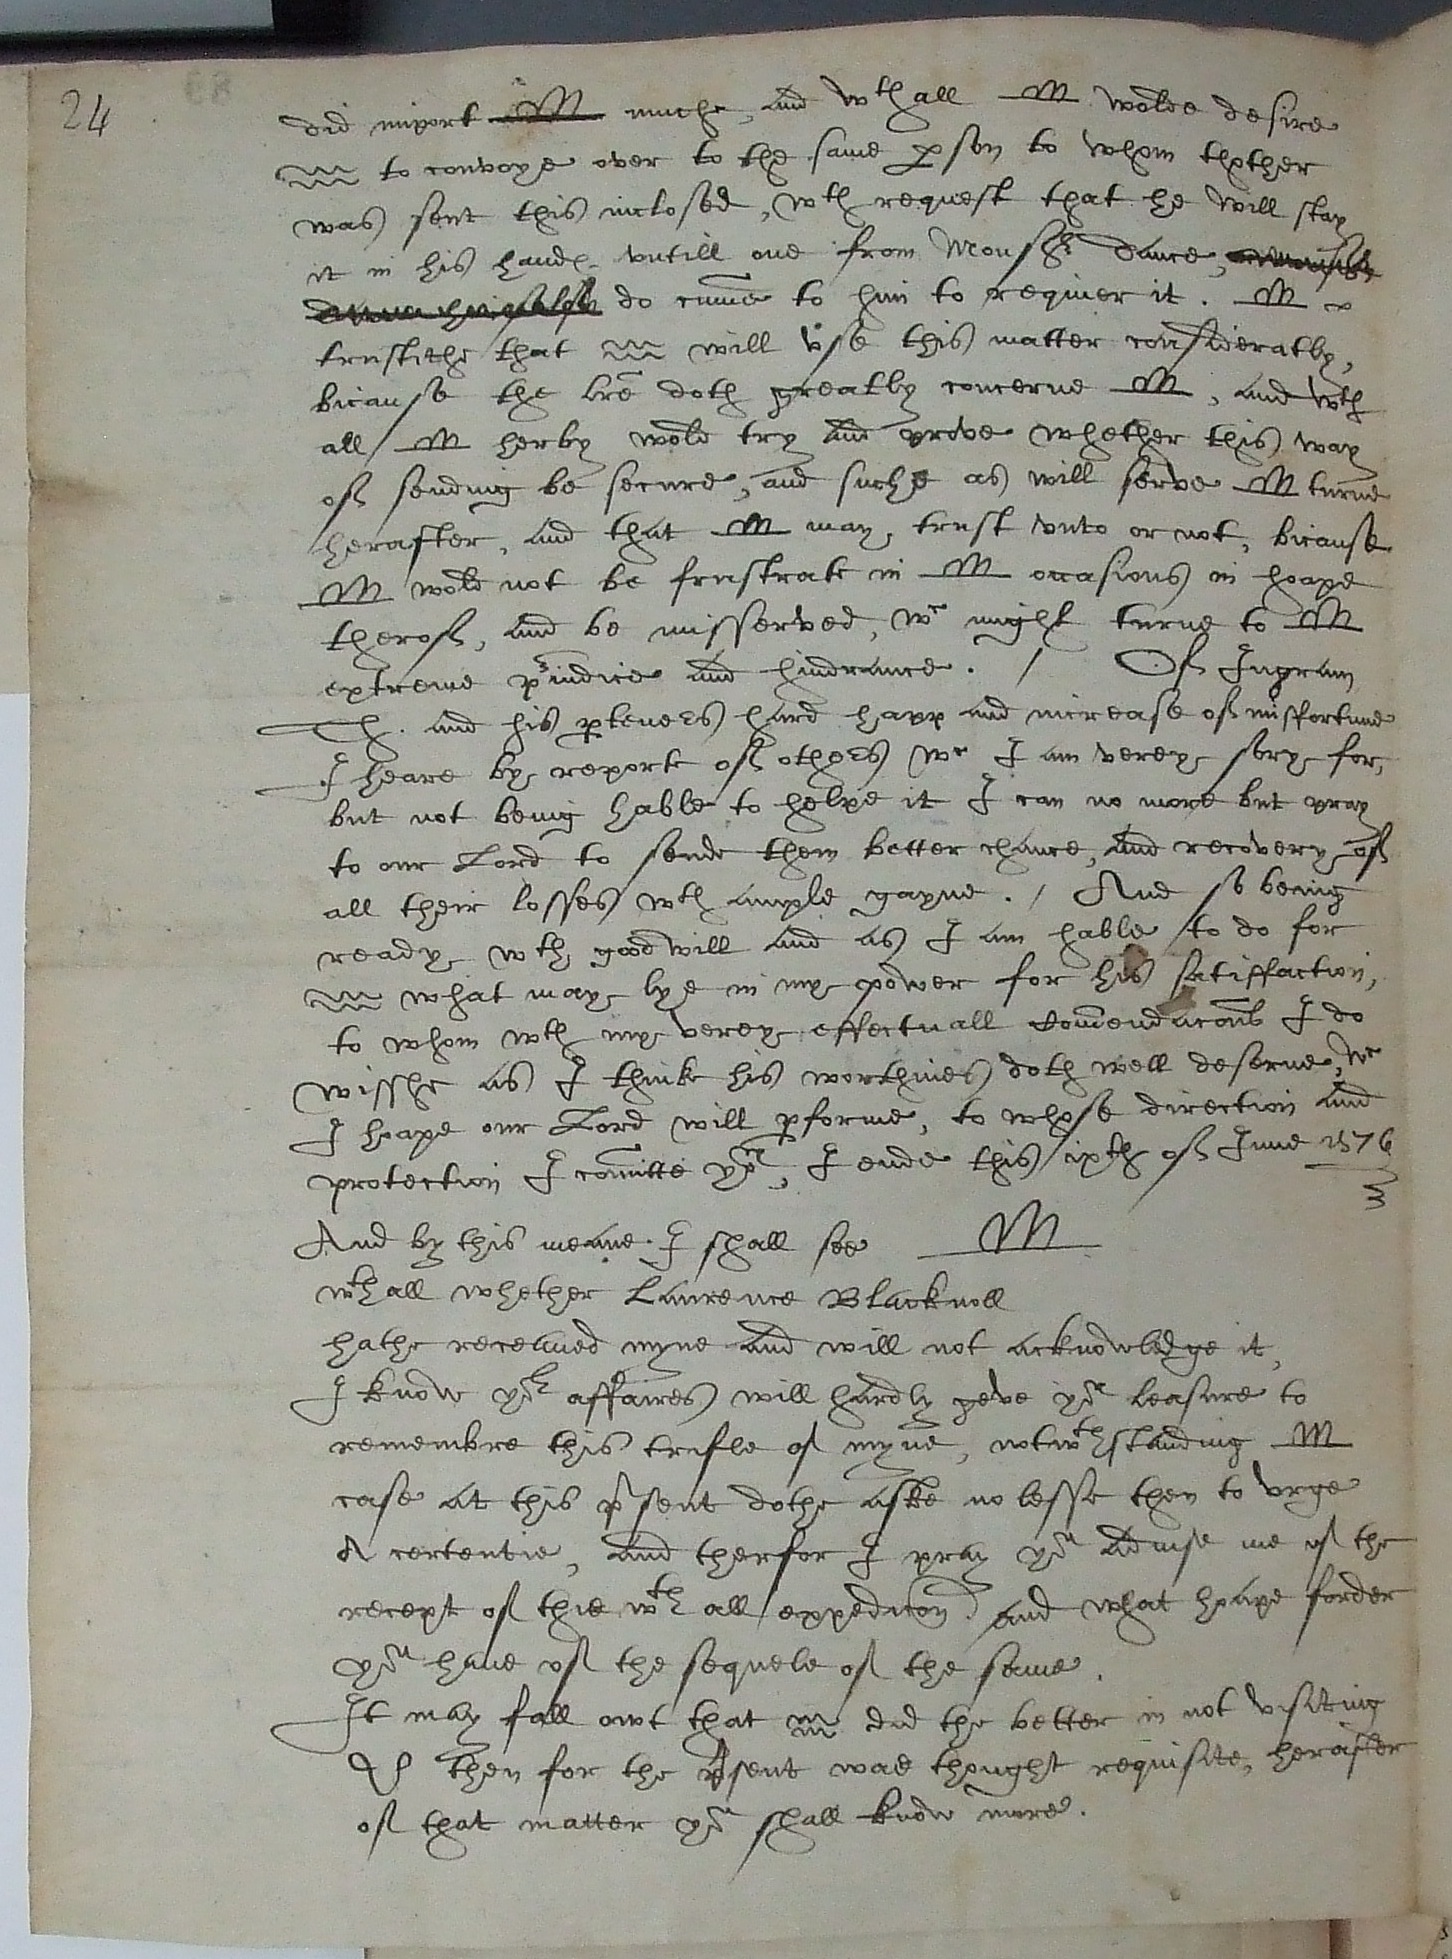 24
did import M muche, and wth all M wolde desire
to convoye over to the same person to whom thother
was sent this inclosed, wth request that he will stay
it in his hand untill one from Monsr Dance,
do cume to him to requier it. M
trustithe that will use this matter consideratly,
bicause the lre doth greatly concerne M, and wth
all M herby wold try and prove whether this way
of sending be secure, and suche as will serve M turne
herafter, and that M may trust unto or not, bicause
M wold not be frustrate in M occasions in hoape
therof, and be misserved, wc might turne to M
extreme priudice and hindrance. / Of Ingram
Th. and his parteners hard happ and increase of missfortune
I heare by reporte of others wc I am verey sory for,
but not being hable to helpe it I can no more but pray
to our Lord to sende them better chance, and recovery of
all their losses wth ample gayne. / And so being
ready wth good will and as I am hable to do for
what may lye in my power for his satisfaction,
to whom wth my verey effectuall comendacons I do
wisshe as I thinke his worthines doth well deserve, wc
I hoape our Lord will performe, to whose direction and
protection I comitte you, I ende this ixth of June 1576
And by this meane I shall see M
wthall whether Laurence Blacknoll
hathe receaved myne and will not acknowledge it,
I know yor affaires will hardly geve you leasure to
remembre this trifle of myne, notwthstanding M
case at this present dothe aske no lesse then to urge
A certentie, and therfor I pray you advise me of the
recept of this wth all expedicon and what hoape forder
you have of the sequele of the same.
It may fall owt that did the better in not visiting
then for the present was thought requisite, herafter
of that matter you shall know more.